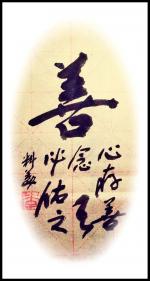 善
心存善
念天
必佑之